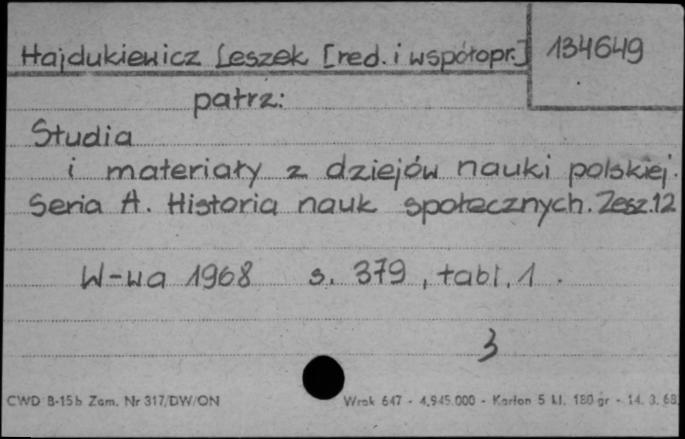 Hajdukiewicz Leszek [red. i współopr.] 134649
patrz:
Studia
i materiały z dziejów nauki polskiej.
Seria A. Historia nauk społecznych. Zesz. 12
W-wa 1968 s. 379, tabl. 1.
3
CWD B-15b Zam. Nr 317/DW/ON Wrok 647 - 4.945.000 - Karton 5 kl. 180 gr - 14. 3. 68